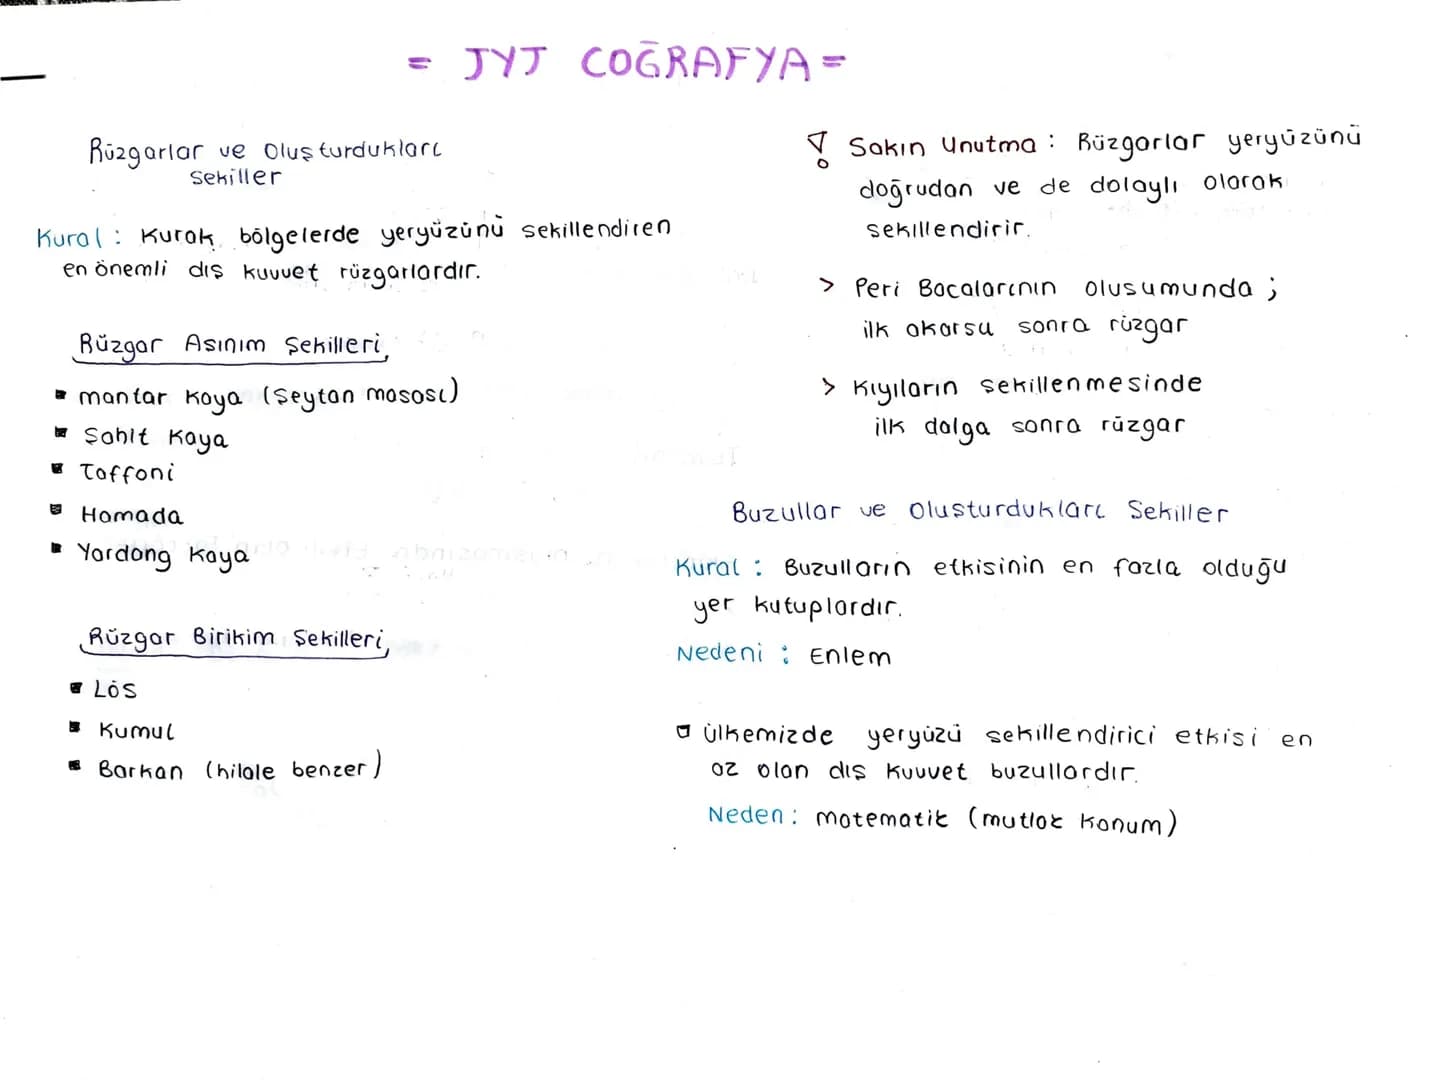 = TYT COĞRAFYA =
Rüzgarlar ve Oluşturdukları
Sekiller
Kural : Kurak bölgelerde yeryüzünü sekillendiren
en önemli dış kuvvet rüzgarlardır.
Rüzgar Asınım Şekilleri
▪ mantar Kaya (Şeytan masası)
▪ Şahit Kaya
▪ Taffoni
▪ Hamada
▪ Yardang Kaya
Rüzgar Birikim Şekilleri
▪ Lös
▪ Kumul
▪ Barkan (hilale benzer)
! Sakın Unutma : Rüzgarlar yeryüzünü
doğrudan ve de dolaylı olarak
sekillendirir.
> Peri Bacalarının olusumunda ;
ilk akarsu sonra rüzgar
> Kıyıların sekillenmesinde
ilk dalga sonra rüzgar
Buzullar ve Olusturdukları Sekiller
Kural : Buzulların etkisinin en fazla olduğu
yer kutuplardır.
Nedeni : Enlem
▫ Ülkemizde yeryüzü sekillendirici etkisi en
az olan dış kuvvet buzullardır.
Neden : matematik (mutlak Konum)